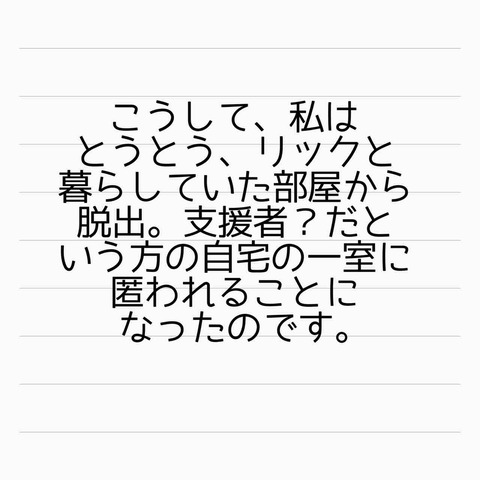 こうして、私は
とうとう、リックと
暮らしていた部屋から
脱出。支援者？だと
いう方の自宅の一室に
匿われることに
なったのです。